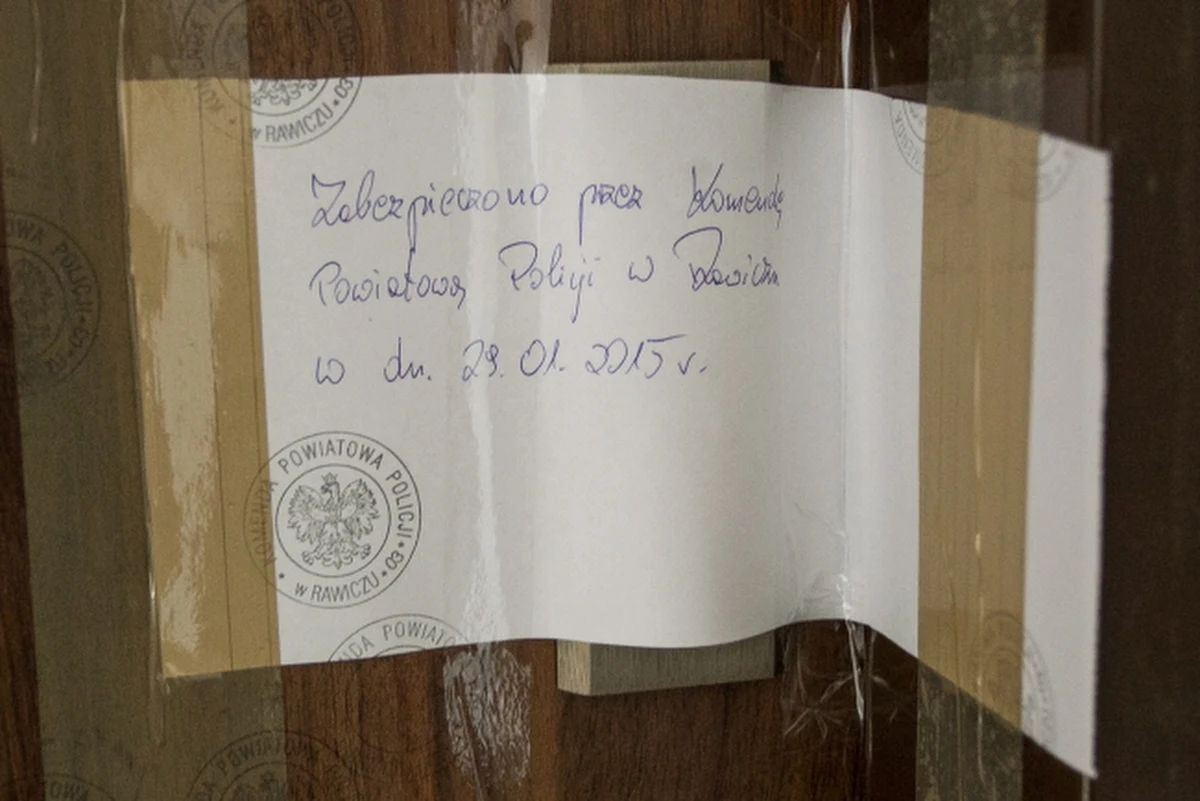 w RAWICZU • 03
Zabezpieczono przez Komendę
Powiatową Policji w Rawiczu
w dn. 29.01.2015 r.
KOMENDA POWIATOWA POLICJI • 03 •
w RAWICZU •
POWIATO
OWA POLICJI • 03 •
POWIATOWA